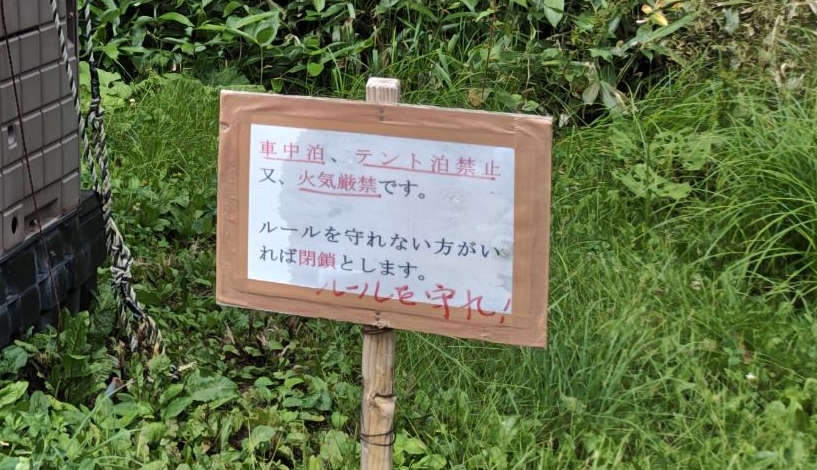 車中泊、テント泊禁止
又、火気厳禁です。
ルールを守れない方がい
れば閉鎖とします。
ルールを守れ!